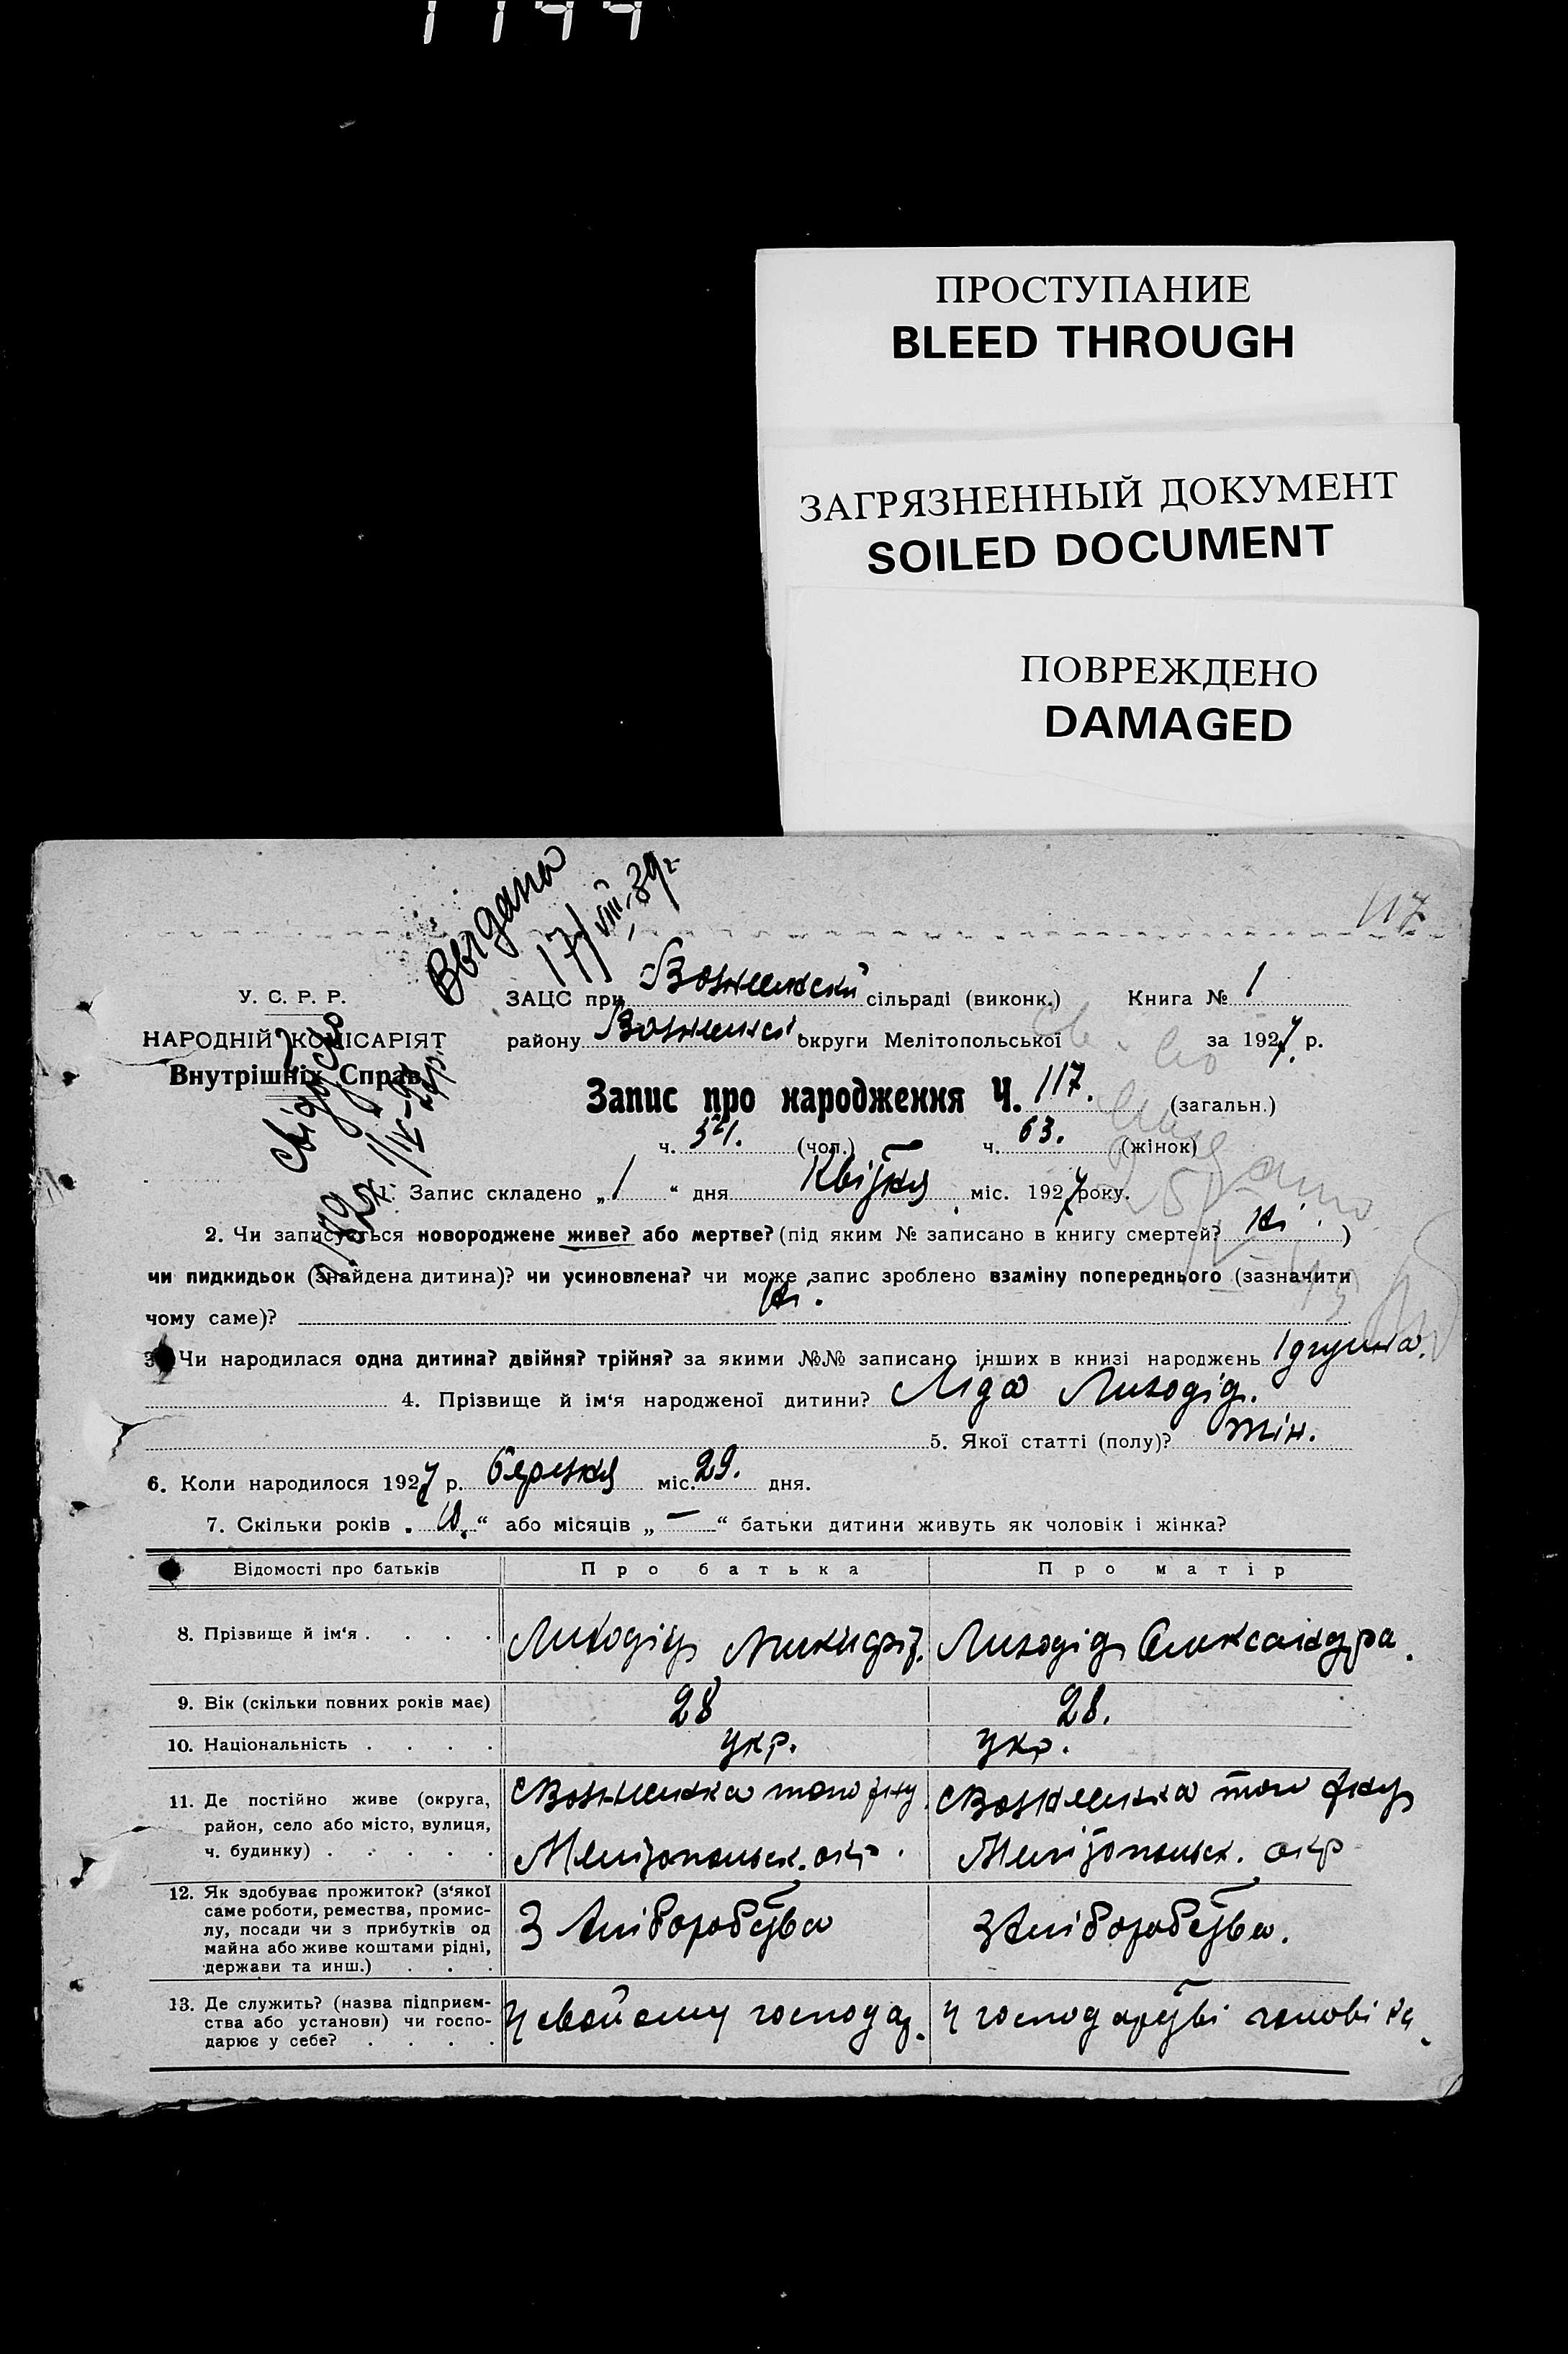 ПРОСТУПАНИЕ
BLEED THROUGH
ЗАГРЯЗНЕННЫЙ ДОКУМЕНТ
SOILED DOCUMENT
ПОВРЕЖДЕНО
DAMAGED
117
Выдано
17/VIII-39г
У. С. Р. Р.
НАРОДНІЙ КОМІСАРІЯТ
Внутрішніх Справ
ЗАЦС при сільраді (виконк.) Книга № 1
району округи Мелітопольської за 1927 р.
Запис про народження Ч. 117. (загальн.)
ч. 54. (чол.) ч. 63. (жінок)
1. Запис складено „1“ дня Квітня міс. 1927 року.
2. Чи записується новороджене живе? або мертве? (під яким № записано в книгу смертей? Ні.)
чи пидкидьок (знайдена дитина)? чи усиновлена? чи може запис зроблено взаміну попереднього (зазначити
чому саме)? Ні.
3. Чи народилася одна дитина? двійня? трійня? за якими №№ записано інших в книзі народжень 1
4. Прізвище й ім‘я народженої дитини? Ліда Лиходід.
5. Якої статті (полу)? жін.
6. Коли народилося 1927 р. березня міс. 29. дня.
7. Скільки років „10.“ або місяців „—“ батьки дитини живуть як чоловік і жінка?
Відомості про батьків Про батька Про матір
8. Прізвище й ім‘я . . . . Лиходід Лиходід Олександра.
9. Вік (скільки повних років має) 28 28.
10. Національність . . . . укр. укр.
11. Де постійно живе (округа,
район, село або місто, вулиця,
ч. будинку) . . . . . Вознесенка того р-ну Вознесенка того р-ну
Мелітопольск. окр. Мелітопольск. окр
12. Як здобуває прожиток? (з‘якої
саме роботи, ремества, промис-
лу, посади чи з прибутків од
майна або живе коштами рідні,
держави та инш.) . . . З хліборобства З хліборобства.
13. Де служить? (назва підприєм-
ства або установи) чи госпо-
дарює у себе? . . . . У свойому господар. У господарстві чоловіка